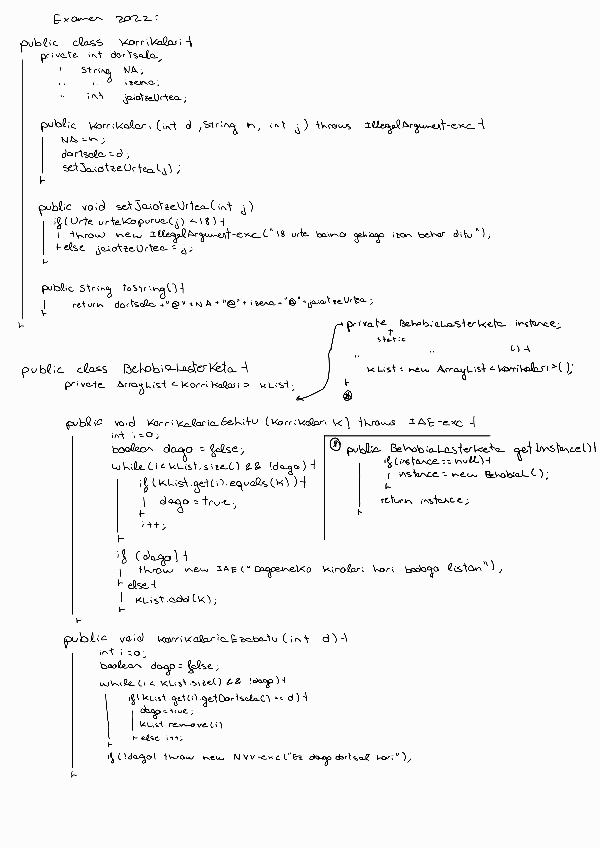 Examen 2022:
public class Korrikalari {
private int dortsala;
" String NA;
" " izena;
" int jaiotzeUrtea;
public Korrikalari (int d, String n, int j) throws IllegalArgument-exc {
NA = n;
dortsala = d;
setJaiotzeUrtea(j);
}
public void setJaiotzeUrtea(int j)
if (Urte urteKopurua(j) < 18) {
throw new IllegalArgument-exc ("18 urte baino gehiago izan behar ditu");
} else jaiotzeUrtea = j;
}
public String toString() {
return dortsala + "@" + NA + "@" + izena + "@" + jaiotzeUrtea;
}
}
private static BehobiaLasterketa instance;
" " () {
kList = new ArrayList<Korrikalari>();
}
⊛
public class BehobiaLasterketa {
private ArrayList<Korrikalari> kList;
public void KorrikalariaGehitu (Korrikalari K) throws IAE-exc {
int i=0;
boolean dago = false;
while (i < kList.size() && !dago) {
if (kList.get(i).equals(K)) {
dago = true;
}
i++;
}
if (dago) {
throw new IAE ("Dagoeneko kirolari hori badago listan");
} else {
kList.add(K);
}
}
⊛ public BehobiaLasterketa getInstance() {
if (instance == null) {
instance = new Behobia L();
}
return instance;
}
public void KorrikalariaEzabatu (int d) {
int i=0;
boolean dago = false;
while (i < kList.size() && !dago) {
if (kList.get(i).getDortsala() == d) {
dago = true;
kList remove(i)
} else i++;
}
if (!dago) throw new NVV-exc ("Ez dago dortsal hori");
}